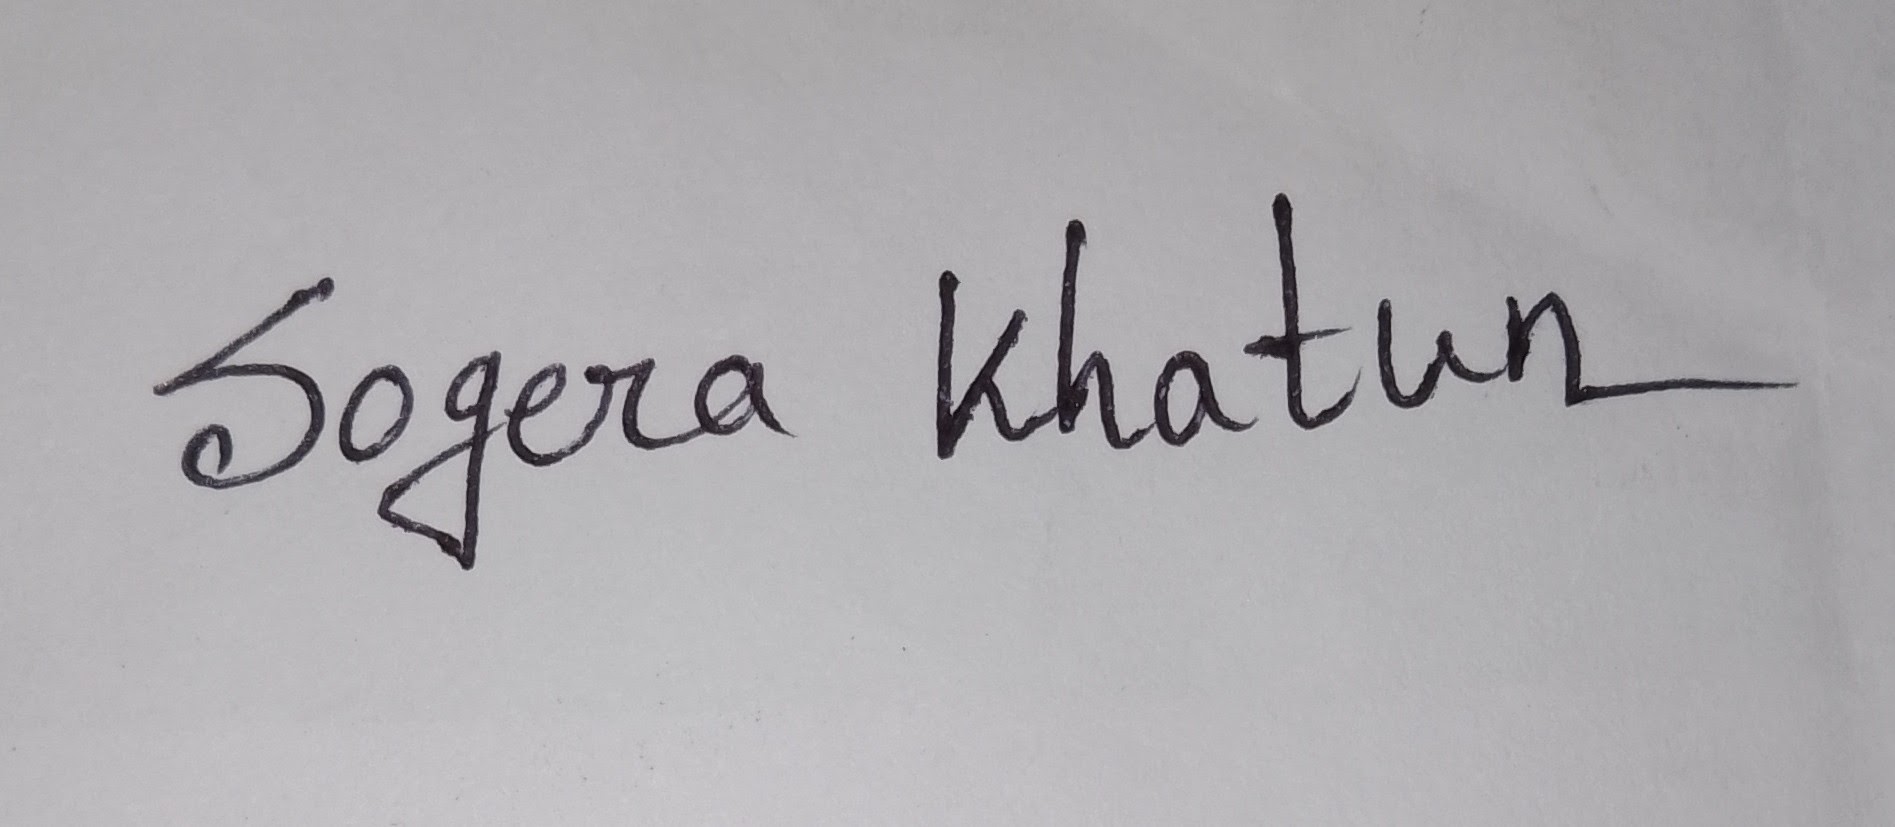 Sogera Khatun